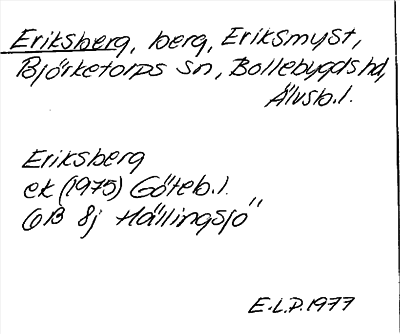 Eriksberg, berg, Eriksmyst,
Björketorps sn, Bollebygds hd,
Älvsb.l.
Eriksberg
ek (1975) Göteb.l.
6B 8j Hällingsjö"
E.L.P. 1977